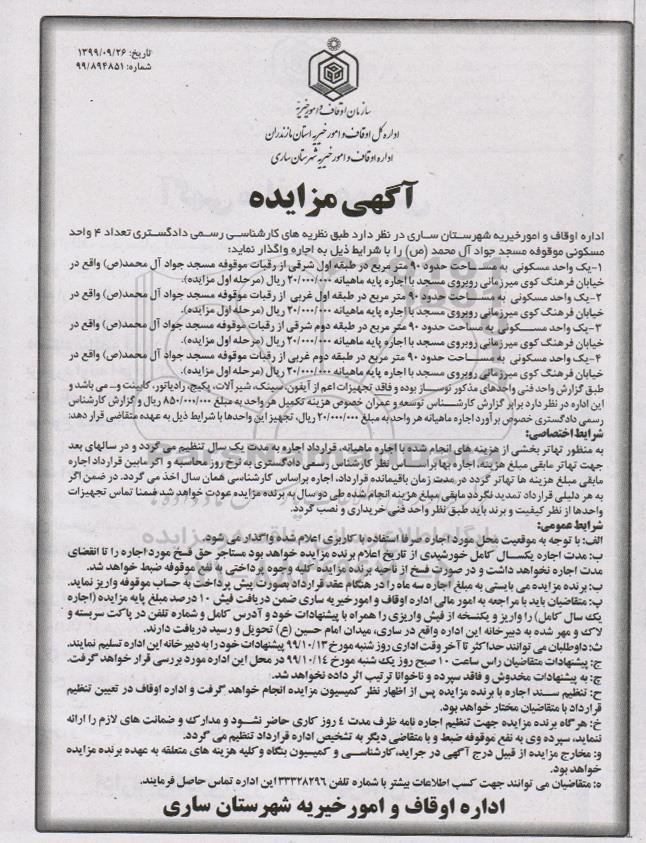 تاریخ: ۱۳۹۹/۰۹/۲۶
شماره: ۹۹/۸۹۴۸۵۱
سازمان اوقاف و امور خیریه
اداره کل اوقاف و امور خیریه استان مازندران
اداره اوقاف و امور خیریه شهرستان ساری
آگهی مزایده
اداره اوقاف و امورخیریه شهرستان ساری در نظر دارد طبق نظریه های کارشناسی رسمی دادگستری تعداد ۴ واحد
مسکونی موقوفه مسجد جواد آل محمد (ص) را با شرایط ذیل به اجاره واگذار نماید:
۱-یک واحد مسکونی به مساحت حدود ۹۰ متر مربع در طبقه اول شرقی از رقبات موقوفه مسجد جواد آل محمد(ص) واقع در
خیابان فرهنگ کوی میرزمانی روبروی مسجد با اجاره پایه ماهیانه ۲۰/۰۰۰/۰۰۰ ریال (مرحله اول مزایده).
۲-یک واحد مسکونی به مساحت حدود ۹۰ متر مربع در طبقه اول غربی از رقبات موقوفه مسجد جواد آل محمد(ص) واقع در
خیابان فرهنگ کوی میرزمانی روبروی مسجد با اجاره پایه ماهیانه ۲۰/۰۰۰/۰۰۰ ریال (مرحله اول مزایده).
۳-یک واحد مسکونی به مساحت حدود ۹۰ متر مربع در طبقه دوم شرقی از رقبات موقوفه مسجد جواد آل محمد(ص) واقع در
خیابان فرهنگ کوی میرزمانی روبروی مسجد با اجاره پایه ماهیانه ۲۰/۰۰۰/۰۰۰ ریال (مرحله اول مزایده).
۴-یک واحد مسکونی به مساحت حدود ۹۰ متر مربع در طبقه دوم غربی از رقبات موقوفه مسجد جواد آل محمد(ص) واقع در
خیابان فرهنگ کوی میرزمانی روبروی مسجد با اجاره پایه ماهیانه ۲۰/۰۰۰/۰۰۰ ریال (مرحله اول مزایده).
طبق گزارش واحد فنی واحدهای مذکور نوساز بوده و فاقد تجهیزات اعم از آیفون، سینک، شیرآلات، پکیج، رادیاتور، کابینت و... می باشد و
این اداره در نظر دارد برابر گزارش کارشناس توسعه و عمران خصوص هزینه تکمیل هر واحد به مبلغ ۸۵۰/۰۰۰/۰۰۰ ریال و گزارش کارشناس
رسمی دادگستری خصوص برآورد اجاره ماهیانه هر واحد به مبلغ ۲۰/۰۰۰/۰۰۰ ریال، تجهیز این واحدها با شرایط ذیل به عهده متقاضی قرار دهد:
شرایط اختصاصی:
به منظور تهاتر بخشی از هزینه های انجام شده با اجاره ماهیانه، قرارداد اجاره به مدت یک سال تنظیم می گردد و در سالهای بعد
جهت تهاتر مابقی مبلغ هزینه، اجاره بها براساس نظر کارشناس رسمی دادگستری به نرخ روز محاسبه و اگر مابین قرارداد اجاره
مابقی مبلغ هزینه ها تهاتر گردد در مدت زمان باقیمانده قرارداد، اجاره براساس کارشناسی همان سال اخذ می گردد. در ضمن اگر
به هر دلیلی قرارداد تمدید نگردد مابقی مبلغ هزینه انجام شده طی دو سال به برنده مزایده عودت خواهد شد ضمنا تمامی تجهیزات
واحدها از نظر کیفیت و برند باید طبق نظر واحد فنی خریداری و نصب گردد.
شرایط عمومی:
الف: با توجه به موقعیت محل مورد اجاره صرفا استفاده با کاربری اعلام شده واگذار می شود.
ب: مدت اجاره یکسال کامل خورشیدی از تاریخ اعلام برنده مزایده خواهد بود مستاجر حق فسخ مورد اجاره را تا انقضای
مدت اجاره نخواهد داشت و در صورت فسخ از ناحیه برنده مزایده کلیه وجوه پرداختی به نفع موقوفه ضبط خواهد شد.
پ: برنده مزایده می بایستی به مبلغ اجاره سه ماه را در هنگام عقد قرارداد بصورت پیش پرداخت به حساب موقوفه واریز نماید.
ت: متقاضیان باید با مراجعه به امور مالی اداره اوقاف و امورخیریه ساری ضمن دریافت فیش ۱۰ درصد مبلغ پایه مزایده (اجاره
یک سال کامل) را واریز و یکنسخه از فیش واریزی را همراه با پیشنهادات خود و آدرس کامل و شماره تلفن در پاکت سربسته و
لاک و مهر شده به دبیرخانه این اداره واقع در ساری، میدان امام حسین (ع) تحویل و رسید دریافت دارند.
ث: داوطلبان می توانند حداکثر تا آخر وقت اداری روز شنبه مورخ ۹۹/۱۰/۱۳ پیشنهادات خود را به دبیرخانه این اداره تسلیم نمایند.
ج: پیشنهادات متقاضیان راس ساعت ۱۰ صبح روز یک شنبه مورخ ۹۹/۱۰/۱۴ در محل این اداره مورد بررسی قرار خواهد گرفت.
چ: به پیشنهادات مخدوش و فاقد سپرده و ناخوانا ترتیب اثر داده نخواهد شد.
ح: تنظیم سند اجاره با برنده مزایده پس از اظهار نظر کمیسیون مزایده انجام خواهد گرفت و اداره اوقاف در تعیین تنظیم
قرارداد با متقاضیان مختار خواهد بود.
خ: هرگاه برنده مزایده جهت تنظیم اجاره نامه ظرف مدت ۴ روز کاری حاضر نشود و مدارک و ضمانت های لازم را ارائه
ننماید، سپرده وی به نفع موقوفه ضبط و با متقاضی دیگر به تشخیص اداره قرارداد تنظیم می گردد.
و: مخارج مزایده از قبیل درج آگهی در جراید، کارشناسی و کمیسیون بنگاه و کلیه هزینه های متعلقه به عهده برنده مزایده
خواهد بود.
ه: متقاضیان می توانند جهت کسب اطلاعات بیشتر با شماره تلفن ۳۳۳۲۸۲۹۶ این اداره تماس حاصل فرمایند.
اداره اوقاف و امورخیریه شهرستان ساری